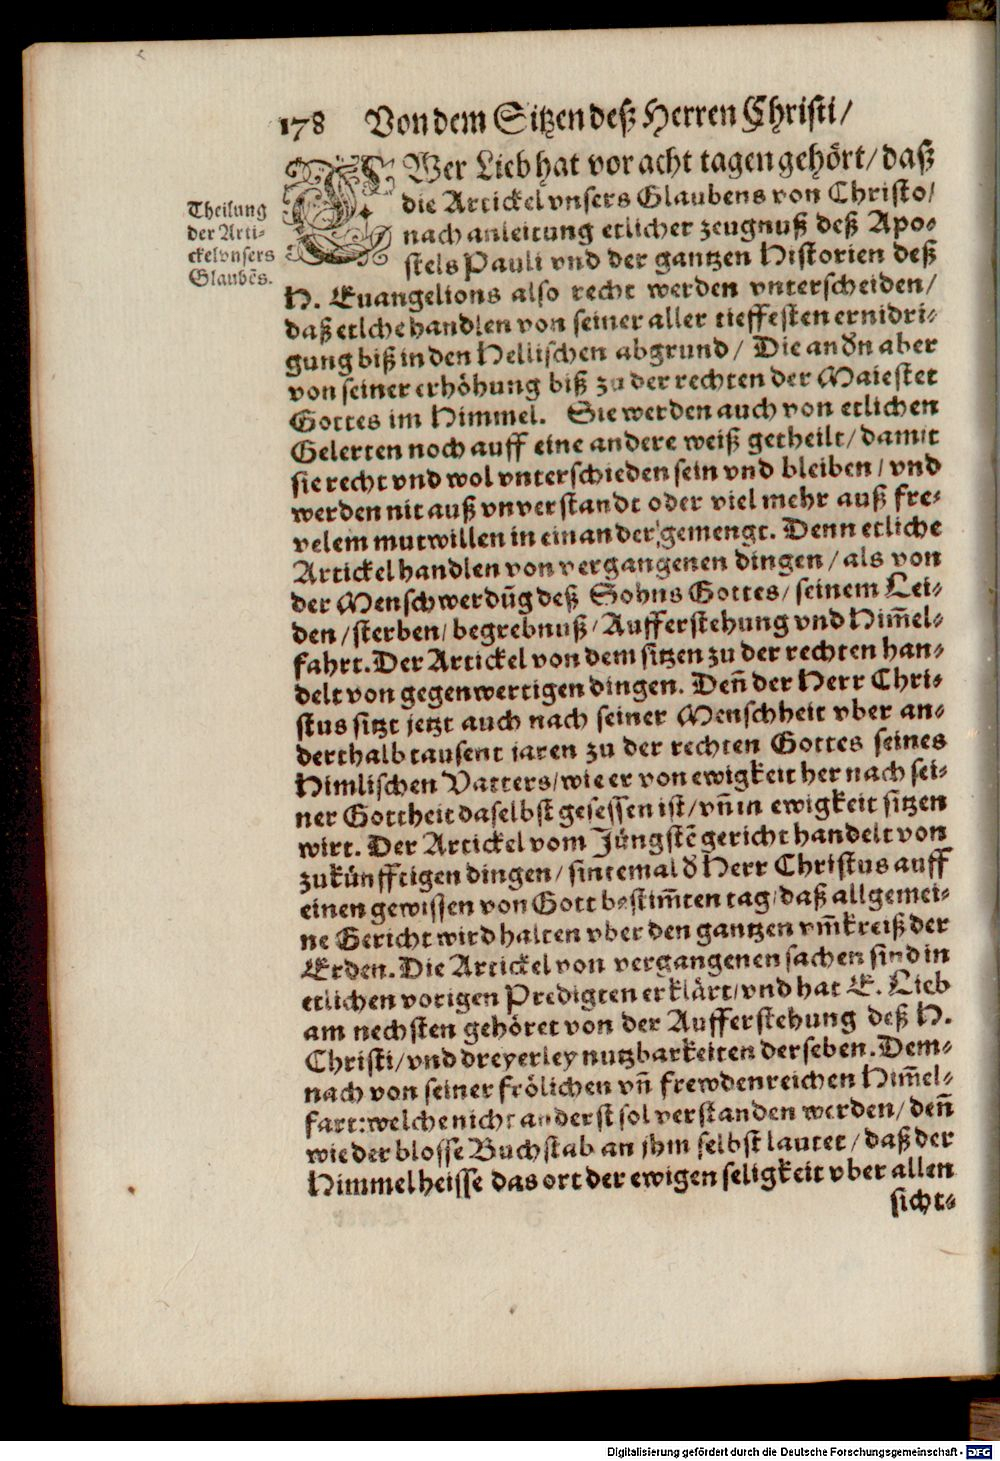 178 Von dem Sitzen deß Herren Christi/
Theilung
der Arti-
ckel vnsers
Glaubēs.
EWer Lieb hat vor acht tagen gehört/ daß
die Artickel vnsers Glaubens von Christo/
nach anleitung etlicher zeugnuß deß Apo-
stels Pauli vnd der gantzen Historien deß
H. Euangelions also recht werden vnterscheiden/
daß etlche handlen von seiner aller tieffesten ernidri-
gung biß in den Hellischen abgrund/ Die andn aber
von seiner erhöhung biß zu der rechten der Maiestet
Gottes im Himmel. Sie werden auch von etlichen
Gelerten noch auff eine andere weiß getheilt/ damit
sie recht vnd wol vnterschieden sein vnd bleiben/ vnd
werden nit auß vnverstandt oder viel mehr auß fre-
velem mutwillen in einander gemengt. Denn etliche
Artickel handlen von vergangenen dingen/ als von
der Menschwerdūg deß Sohns Gottes/ seinem Lei-
den/ sterben/ begrebnuß/ Aufferstehung vnd Him̄el-
fahrt. Der Artickel von dem sitzen zu der rechten han-
delt von gegenwertigen dingen. Den̄ der Herr Chri-
stus sitzt jetzt auch nach seiner Menschheit vber an-
derthalb tausent jaren zu der rechten Gottes seines
Himlischen Vatters/ wie er von ewigkeit her nach sei-
ner Gottheit daselbst gesessen ist/ vn̄ in ewigkeit sitzen
wirt. Der Artickel vom Jüngstē gericht handelt von
zukünfftigen dingen/ sintemal d Herr Christus auff
einen gewissen von Gott bestim̄ten tag/ daß allgemei-
ne Gericht wird halten vber den gantzen vm̄kreiß der
Erden. Die Artickel von vergangenen sachen sind in
etlichen vorigen Predigten erklärt/ vnd hat E. Lieb
am nechsten gehöret von der Aufferstehung deß H.
Christi/ vnd dreyerley nutzbarkeiten derseben. Dem-
nach von seiner frölichen vn̄ frewdenreichen Him̄el-
fart: welche nicht anderst sol verstanden werden/ den̄
wie der blosse Buchstab an jhm selbst lautet/ daß der
Himmel heisse das ort der ewigen seligkeit vber allen
sicht-
Digitalisierung gefördert durch die Deutsche Forschungsgemeinschaft - DFG